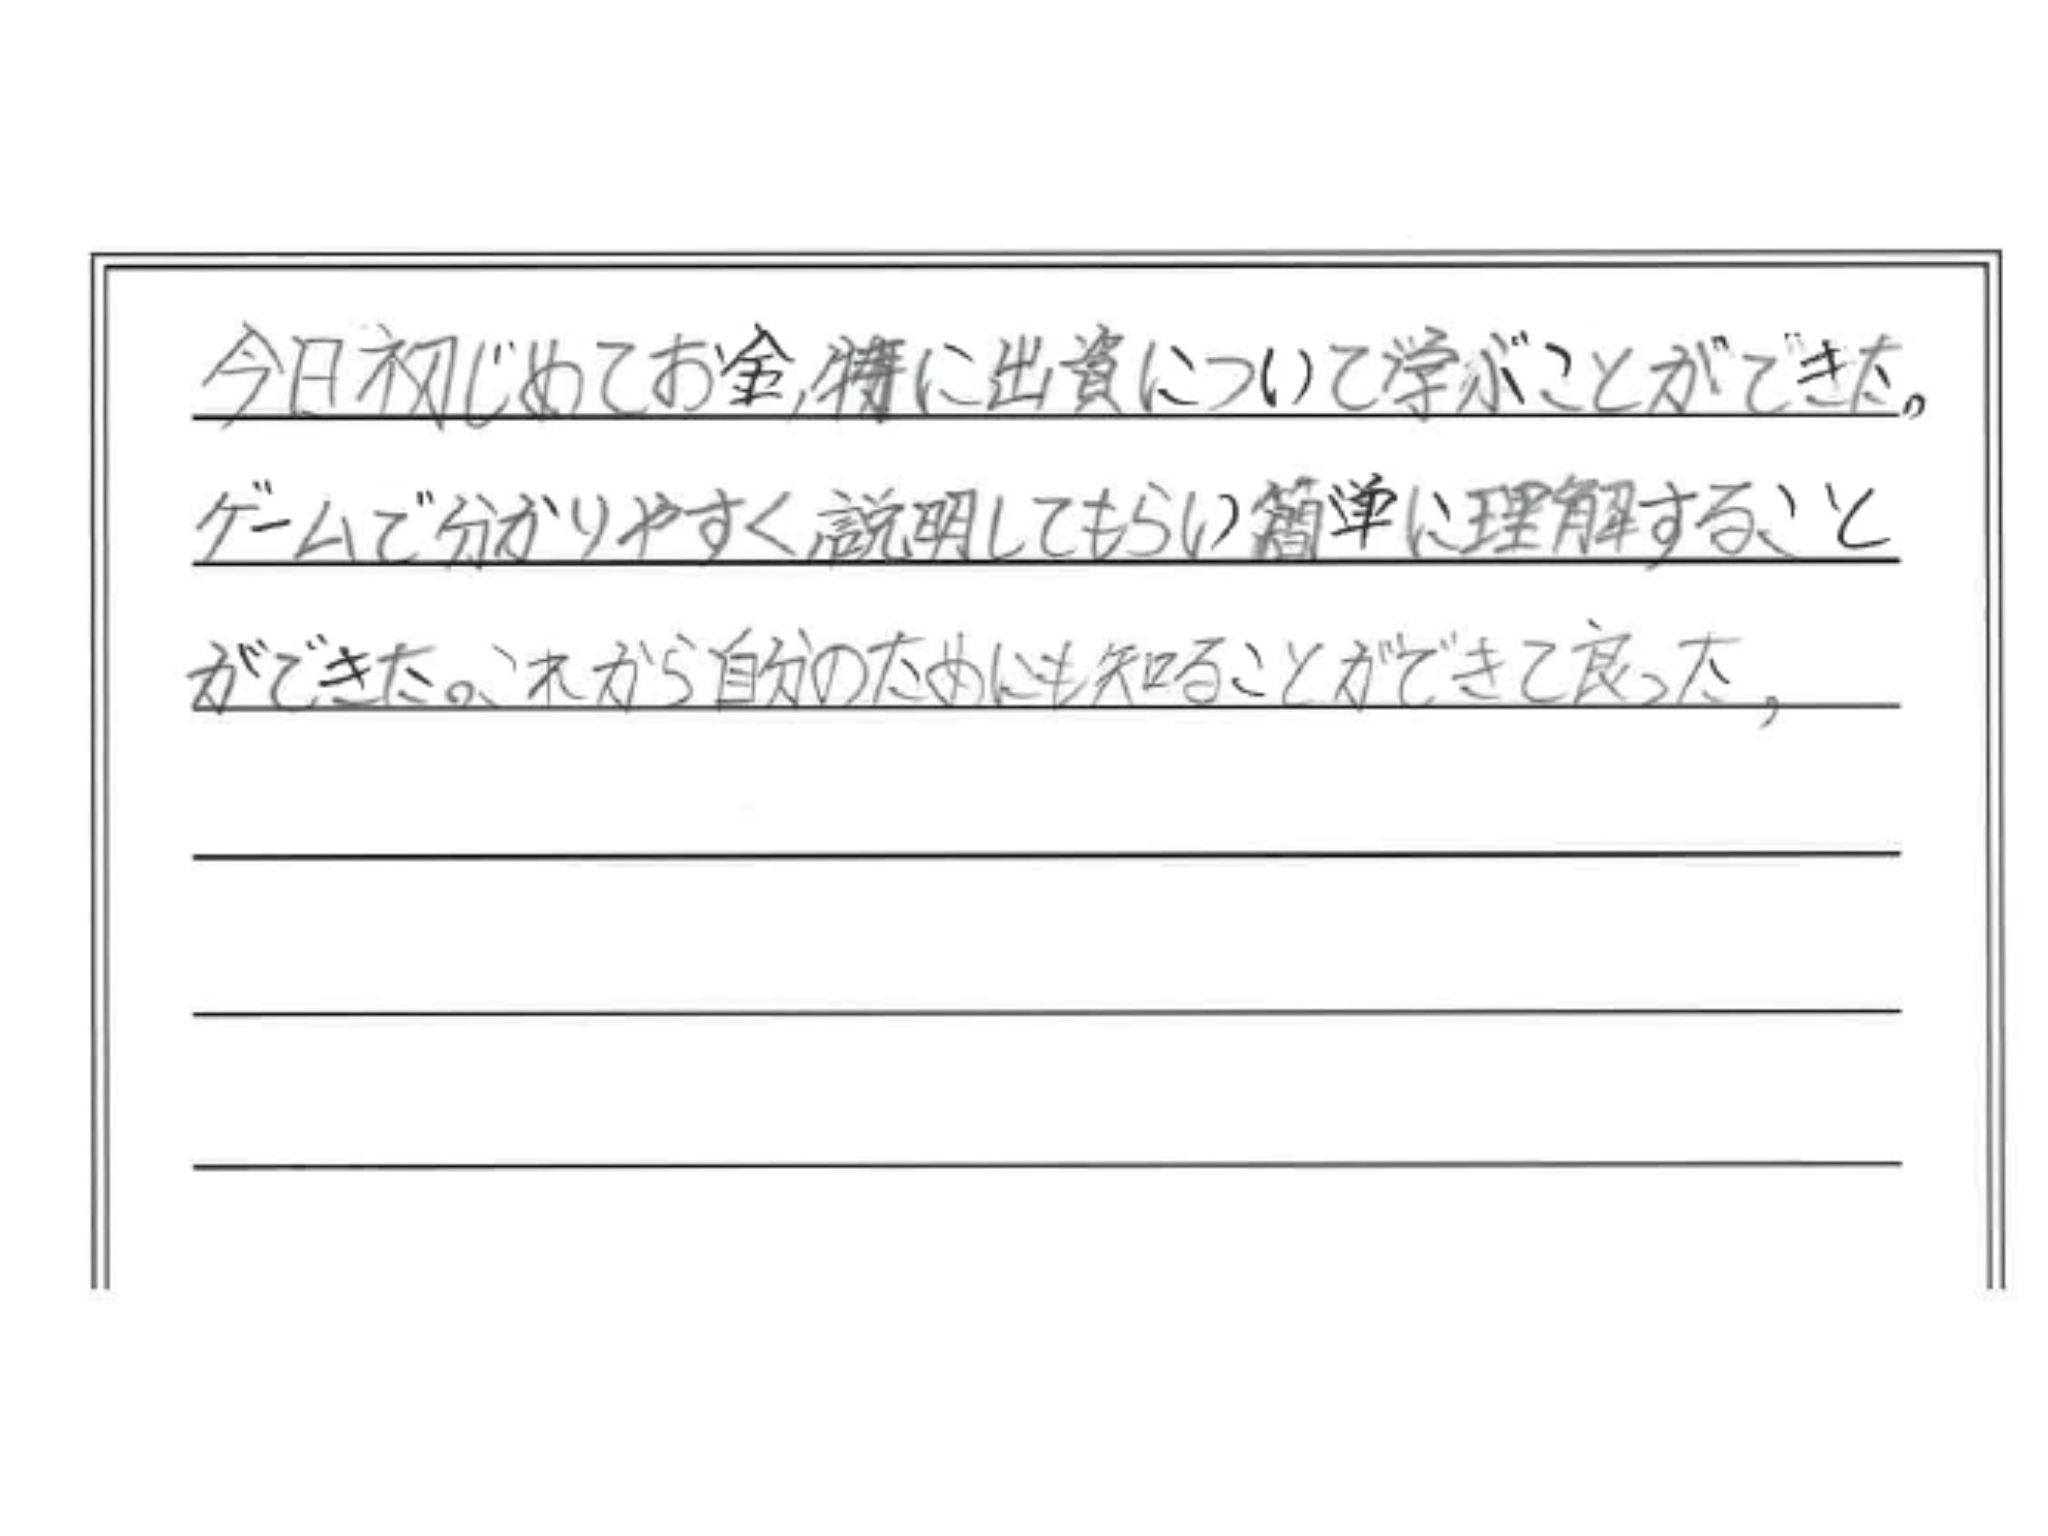 今日初じめてお金,特に出資について学ぶことができた。
ゲームで分かりやすく説明してもらい簡単に理解すること
ができた。これから自分のためにも知ることができて良った,